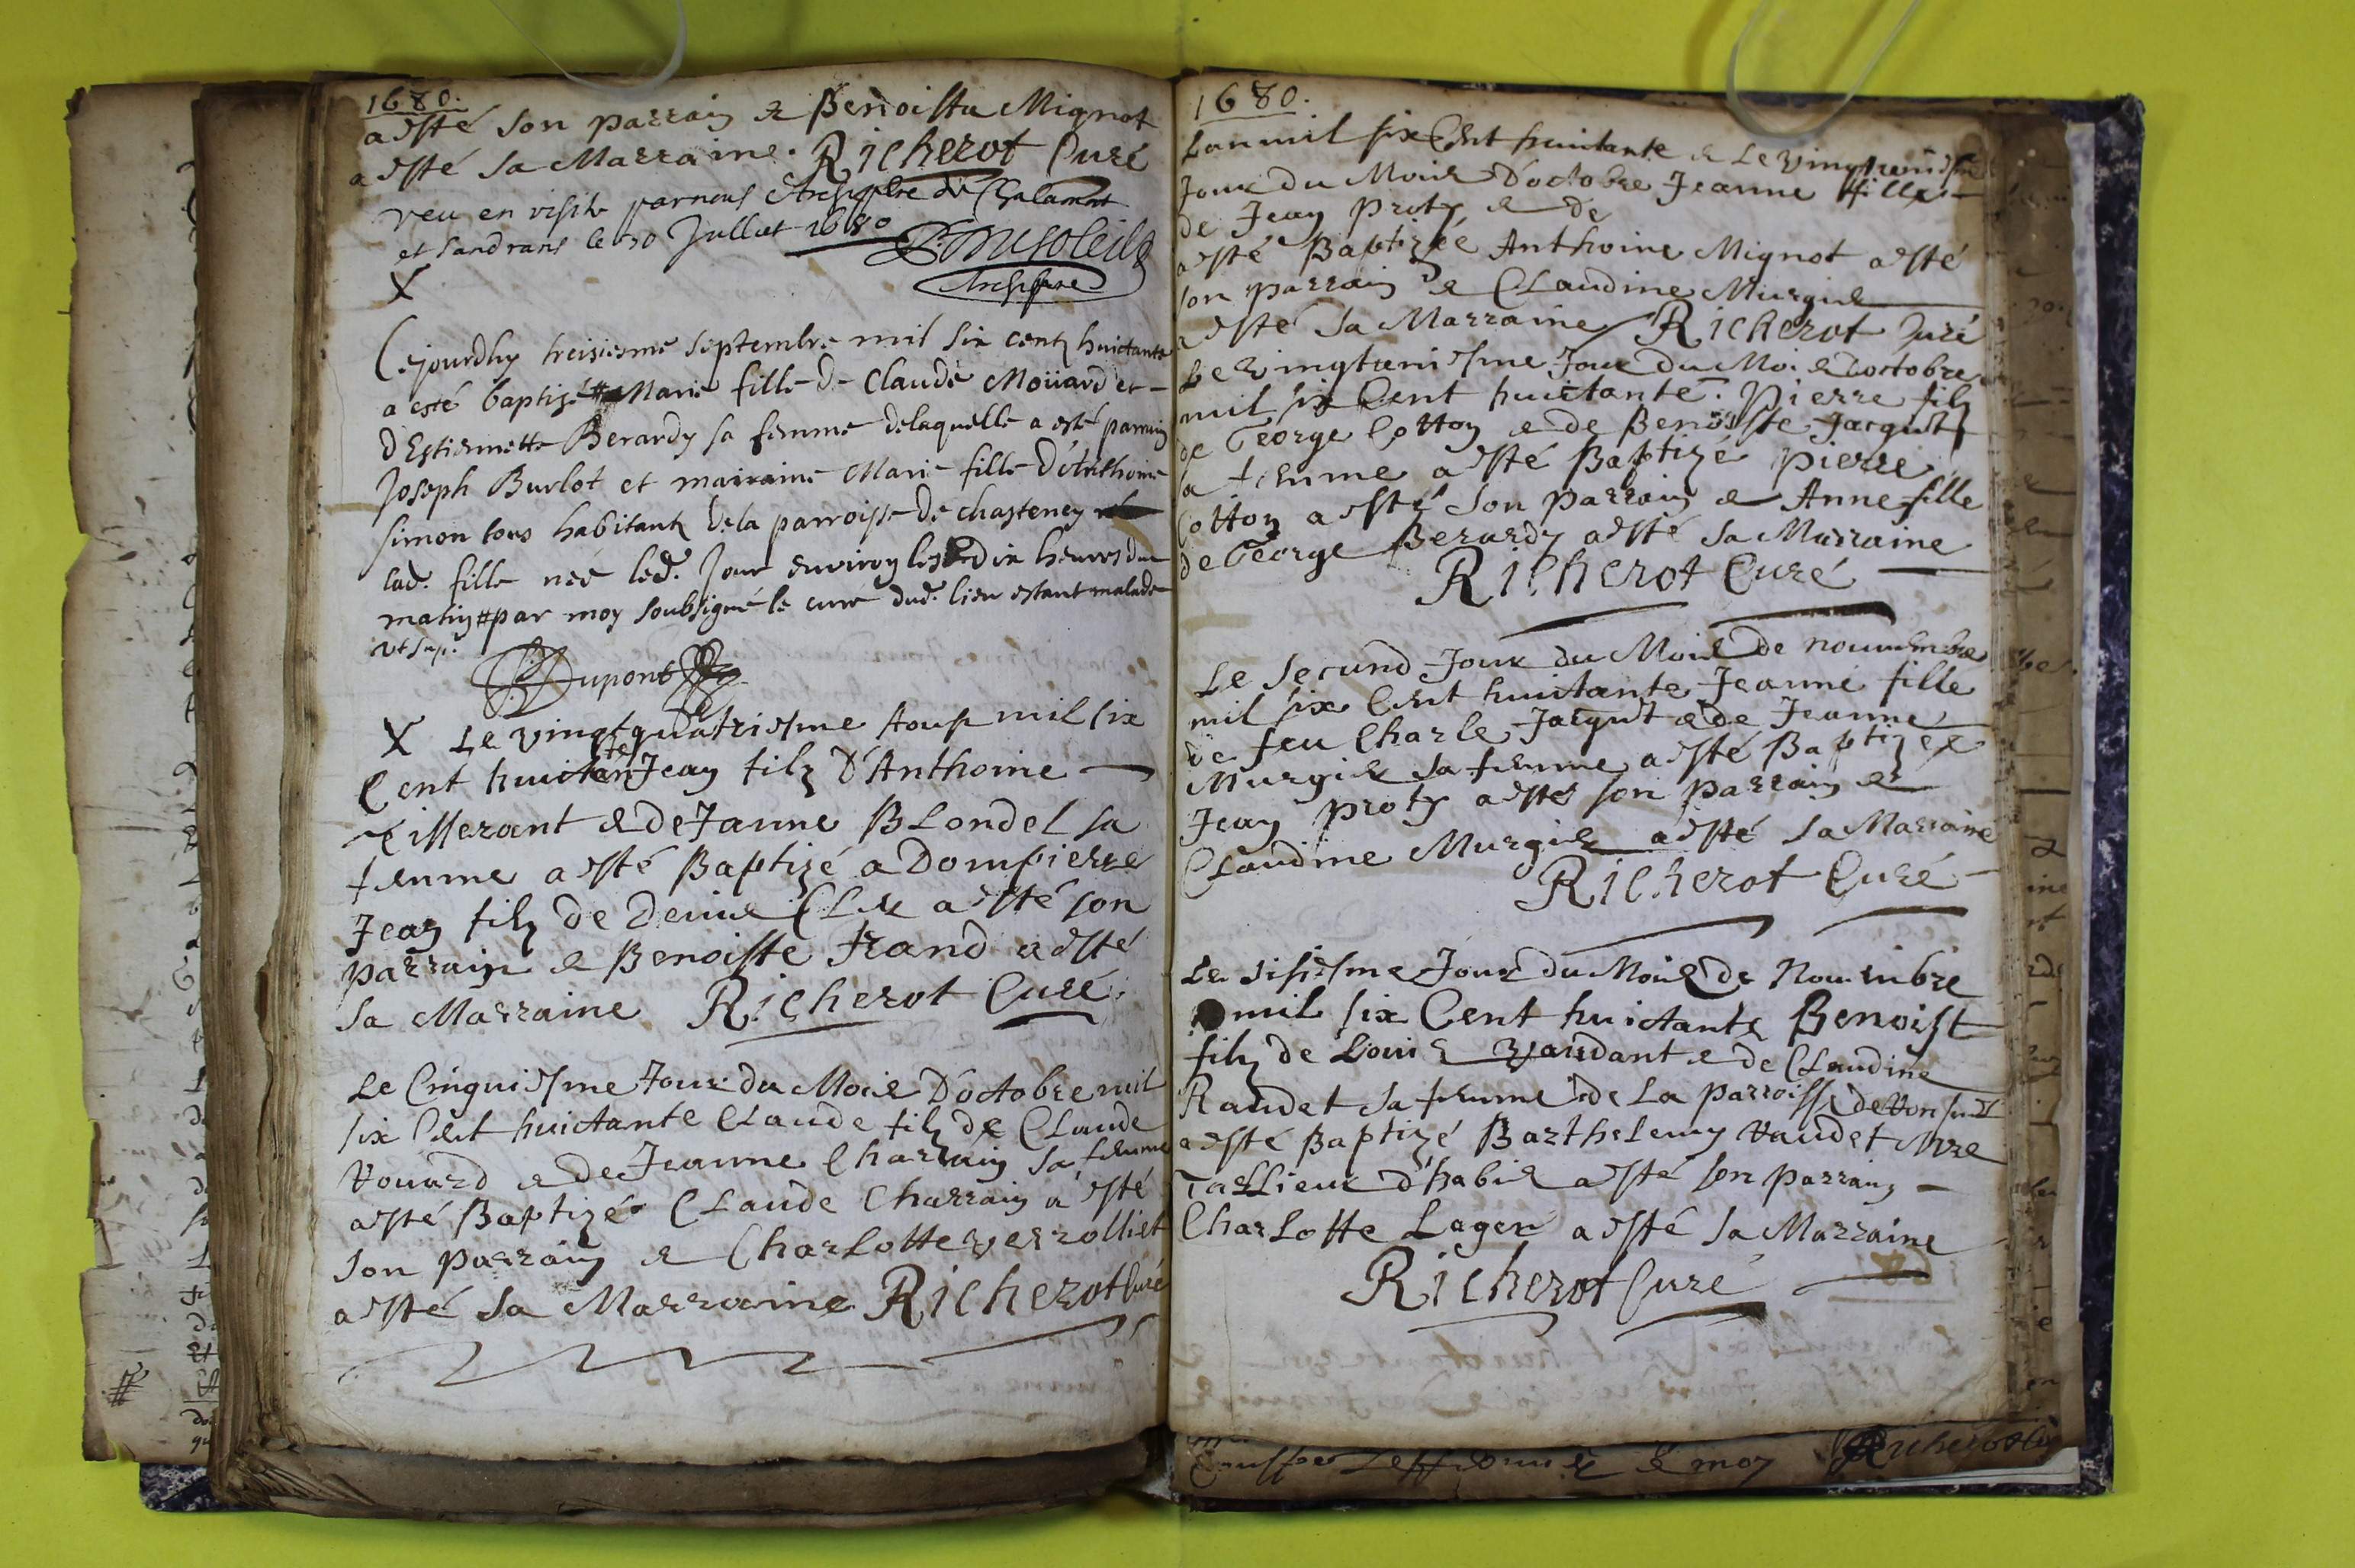 1680.
a esté son parrain & Benoista Mignot
a esté sa Marraine. Richerot Curé
veu en visite par nous Archipbre de Chalamont
et Sandrans le 30 Juillet 1680
Archipbre
X
Cejourdhuy treisiesme septembre mil six centz huictante
a esté baptizé # Marie fille de Claude Moüard et
d'Estiennette Berardy sa femme delaquelle a esté parrain
Joseph Burlot et mairaine Marie fille d'Anthoine
simon tous habitantz dela parroisse de chasteney
lad. fille née led. Jour environ les dix heures du
matin # par moy soubsigné le curé dud. lieu estant malade
ut sup.
Dupont
X Le vingtquatriesme aoust mil six
Cent huictante Jean filz D'Anthoine
Tisserant & de Janne Blondel sa
femme a esté Baptizé a Dompierre
Jean filz de Denis Cler a esté son
parrain & Benoiste Frand a esté
sa Marraine Richerot Curé.
Le Cinquiesme Jour du Mois D'octobre mil
six Cent huictante Claude filz de Claude
Vouard & de Jeanne Charrain sa femme
a esté Baptizé Claude Charrain a esté
son parrain & Charlotte verrolliet
a esté sa Marraine Richerot Curé
1680.
Lan mil six Cent huictante & Le
Jour du Mois D'octobre Jeanne fille
de Jean Proty & de
a esté Baptizée Anthoine Mignot a esté
son parrain & Claudine Murgier
a esté sa Marraine Richerot Curé
Le vingtuniesme Jour du Mois doctobre
mil six Cent huictante. Pierre filz
de George Cotton & de Benoiste Jacquet
sa femme a esté Baptizé Pierre
Cotton a esté son parrain & Anne fille
de George Berardy a esté sa Marraine
Richerot Curé
Le second Jour du Mois de nouembre
mil six Cent huictante Jeanne fille
de feu Charle Jacquet & de Jeanne
Murgier sa femme a esté Baptizée
Jean proty a esté son parrain &
Claudine Murgier a esté sa Marraine
Richerot Curé
Le sisiesme Jour du Mois de Nouembre
mil six Cent huictante Benoist
filz de Louis & de Claudine
Raudet sa femme de La parroisse de
a esté Baptizé Barthelemy Vaudet Mre
Taillieur d'habis a esté son parrain
Charlotte Lager a esté sa Marraine
Richerot Curé